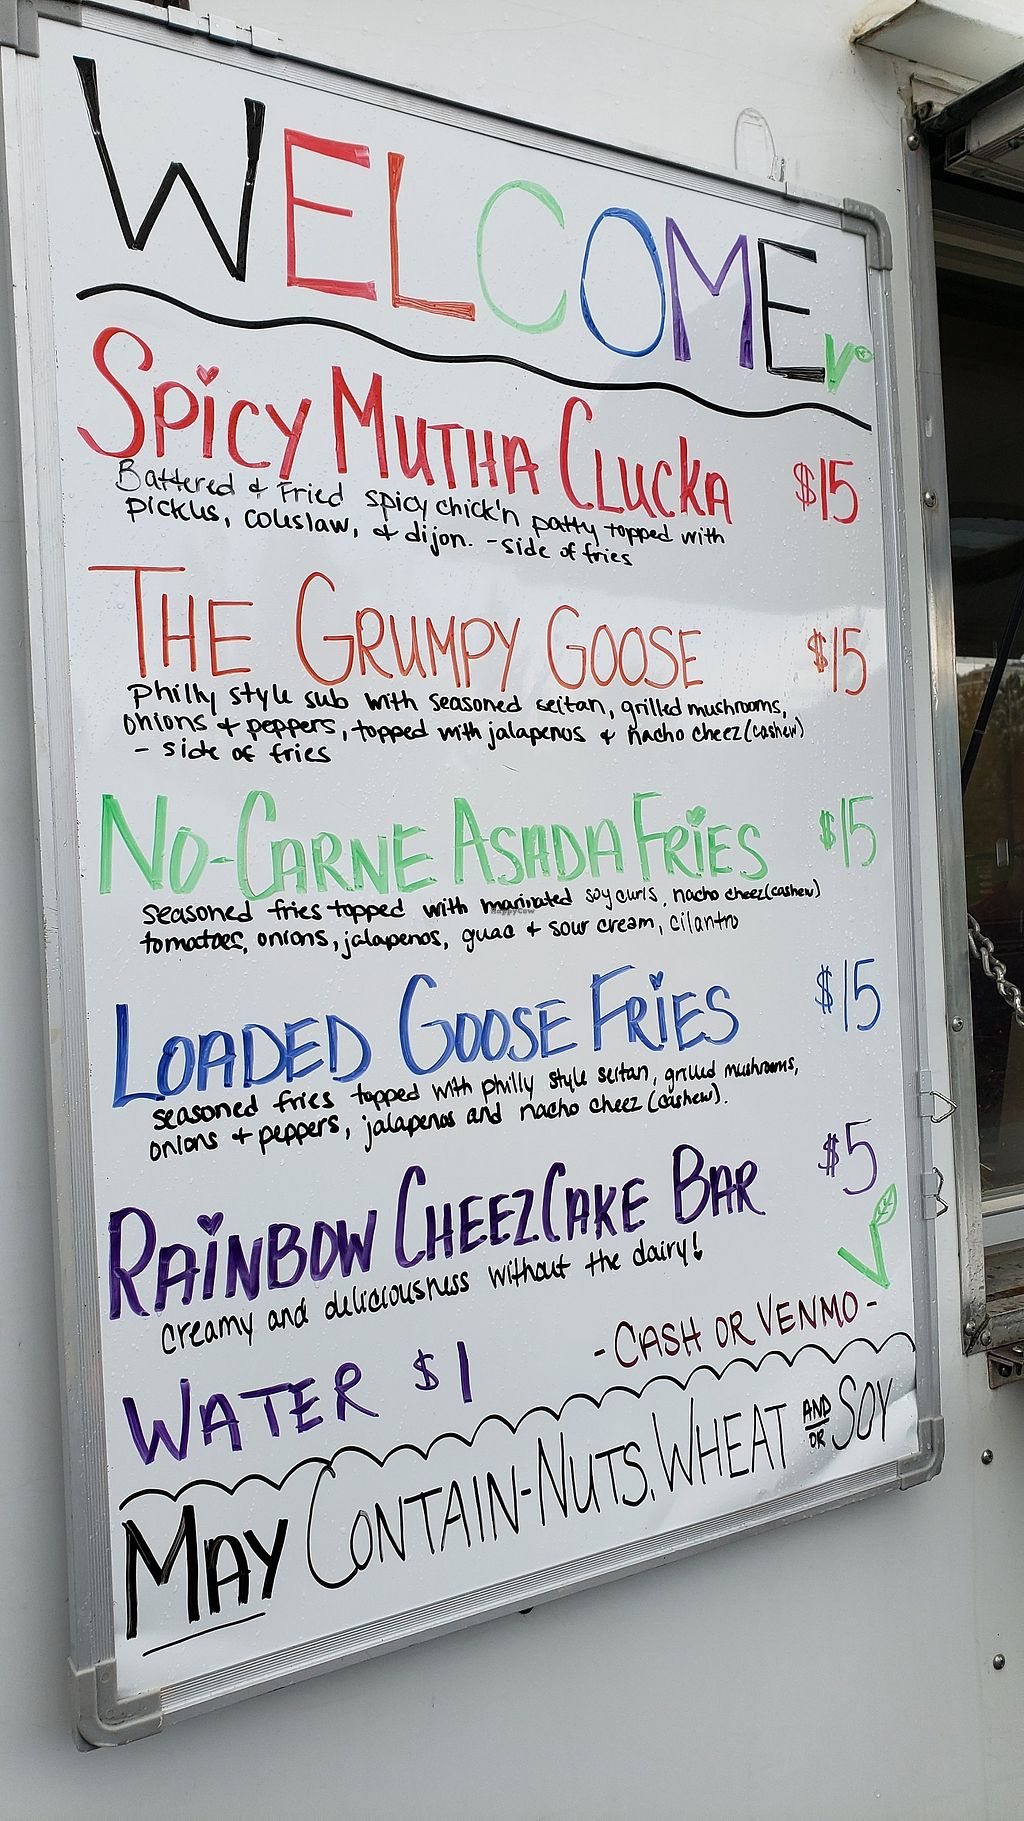 WELCOME V
SPICY MUTHA CLUCKA $15
Battered & Fried spicy chick'n patty topped with
pickles, coleslaw, & dijon. - side of fries
THE GRUMPY GOOSE $15
philly style sub with seasoned seitan, grilled mushrooms,
onions + peppers, topped with jalapenos + nacho cheez (cashew)
- side of fries
NO-CARNE ASADA FRIES $15
seasoned fries topped with marinated soy curls, nacho cheez (cashew)
HappyCow
tomatoes, onions, jalapenos, guac + sour cream, cilantro
LOADED GOOSE FRIES $15
seasoned fries topped with philly style seitan, grilled mushrooms,
onions + peppers, jalapenos and nacho cheez (cashew).
RAINBOW CHEEZCAKE BAR $5
creamy and deliciousness without the dairy!
WATER $1
- CASH OR VENMO -
MAY CONTAIN-NUTS, WHEAT AND OR SOY